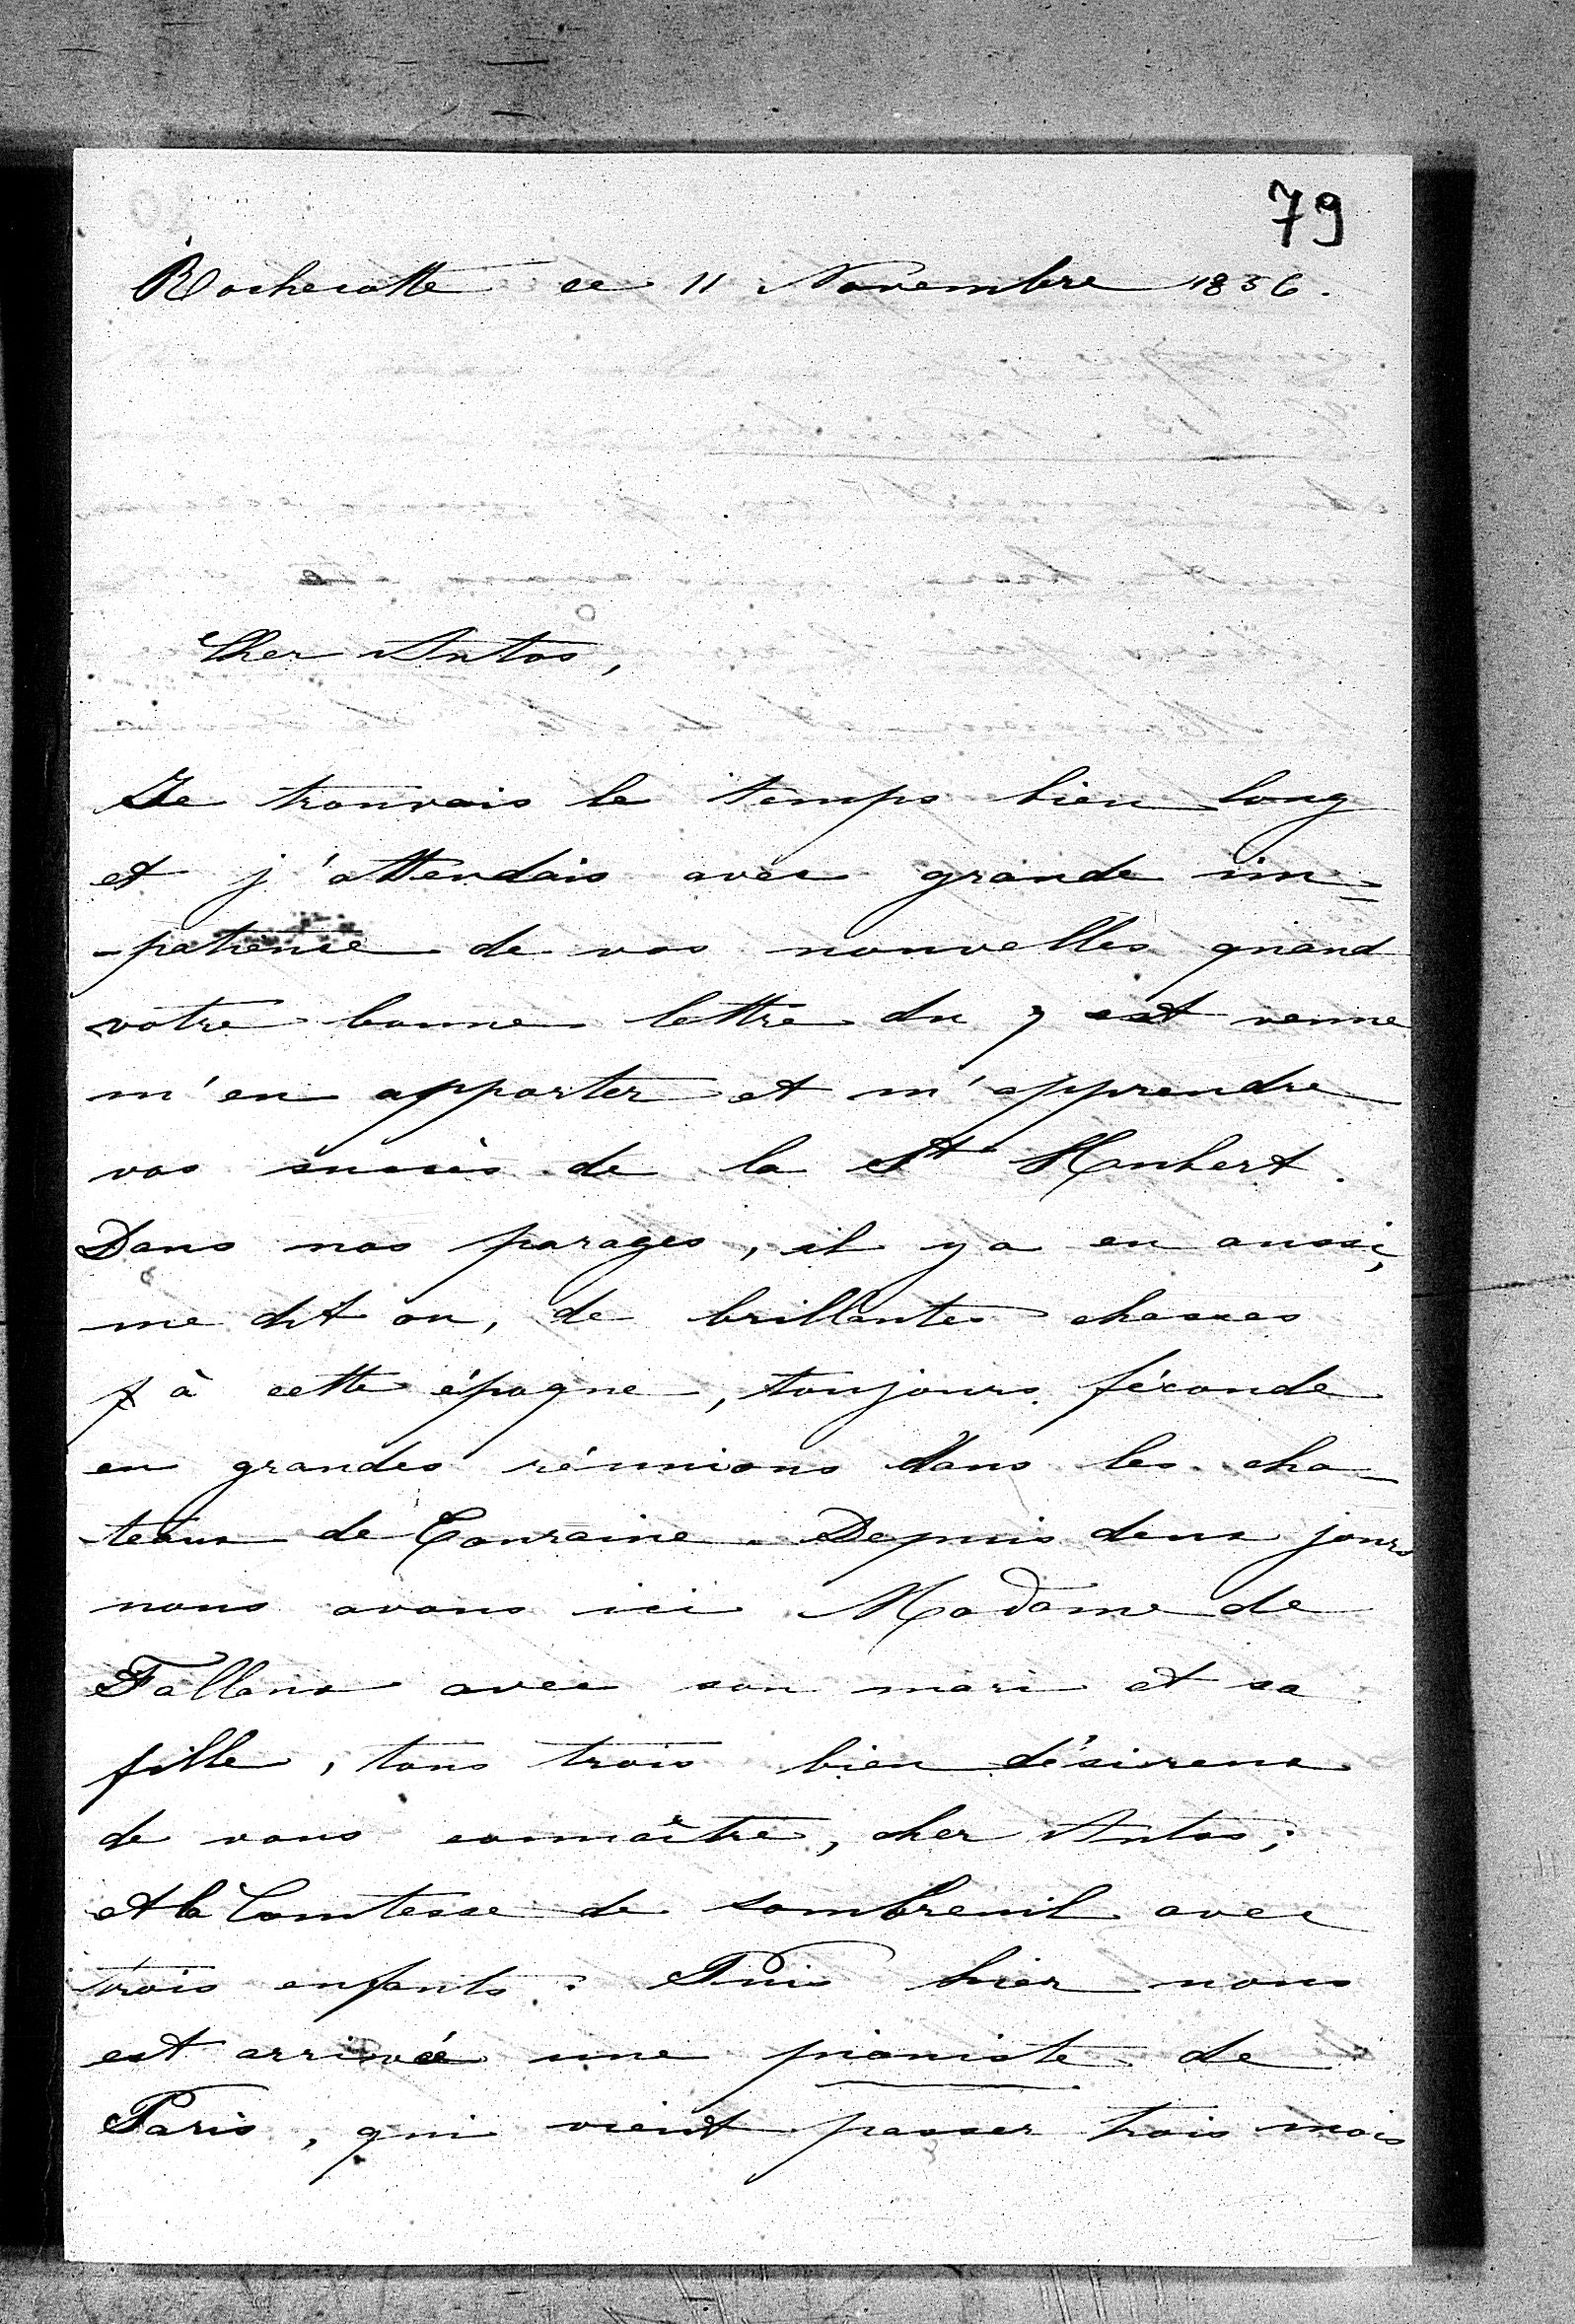 79
Rochecotte ce 11 Novembre 1856.
Cher Antos,
Je trouvais le temps bien long
et j'attendais avec grande im=
-patience de vos nouvelles quand
votre bonne lettre du 7 est venue
m'en apporter et m'apprendre
vos succès de la St Houbert.
Dans nos parages, il y a eu aussi,
me dit on, de brillantes chasses
à cette époque, toujours féconde
en grandes réunions dans les cha-
-teaux de Touraine. Depuis deux jours
nous avons ici Madame de
Falloux avec son mari et sa
fille, tous trois bien désireux
de vous connaître, cher Antos;
et la Comtesse de Sombreuil avec
trois enfants. Puis hier nous
est arrivée une pianiste de
Paris, qui vient passer trois mois